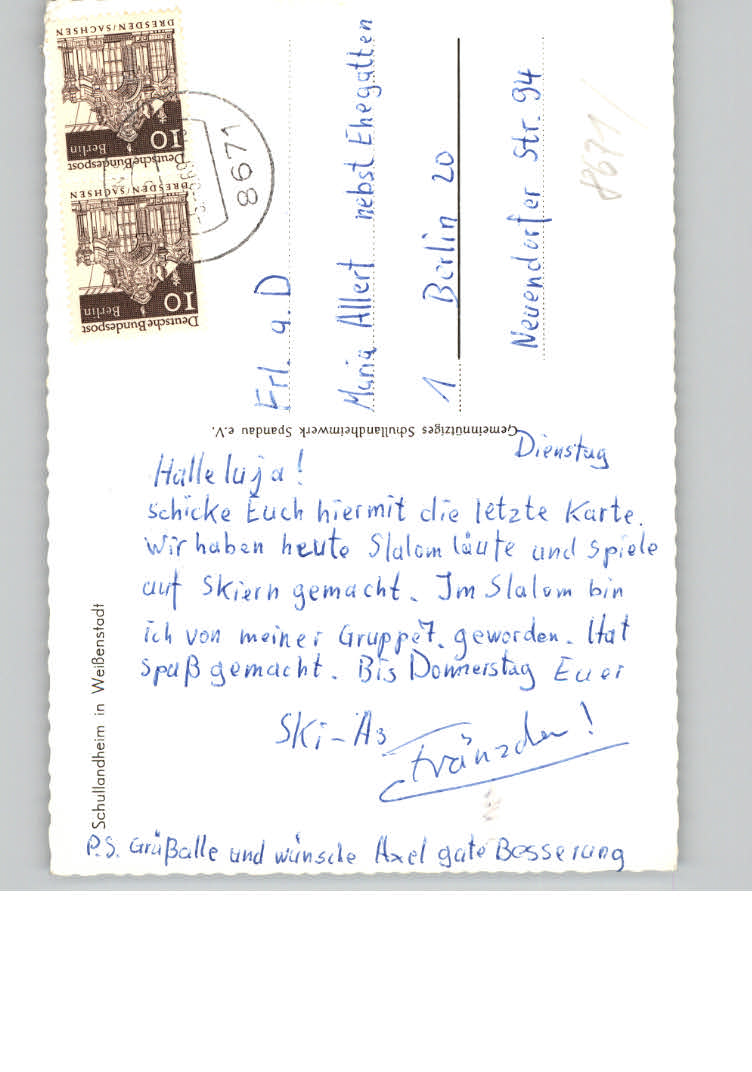 DRESDEN/SACHSEN
10
Berlin
Deutsche Bundespost
DRESDEN/SACHSEN
10
Berlin
Deutsche Bundespost
8671
8671/
Frl. a. D
Maria Allert nebst Ehegatten
1 Berlin 20
Neuendorfer Str. 94
Gemeinnütziges Schullandheimwerk Spandau e.V.
Dienstag
Halleluja!
schicke Euch hiermit die letzte Karte.
Wir haben heute Slalomläufe und Spiele
auf Skiern gemacht. Im Slalom bin
ich von meiner Gruppe 1. geworden. Hat
Spaß gemacht. Bis Donnerstag Euer
Ski-As
Fränzchen!
P.S. Grüß alle und wünsche Axel gute Besserung
Schullandheim in Weißenstadt